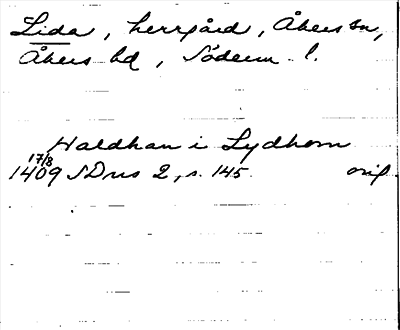 Lida, herrgård, Åkers sn,
Åkers hd, Söderm. l.
Haldhan i Lydhom
17/8
1409 SDns 2, s. 145. orig.